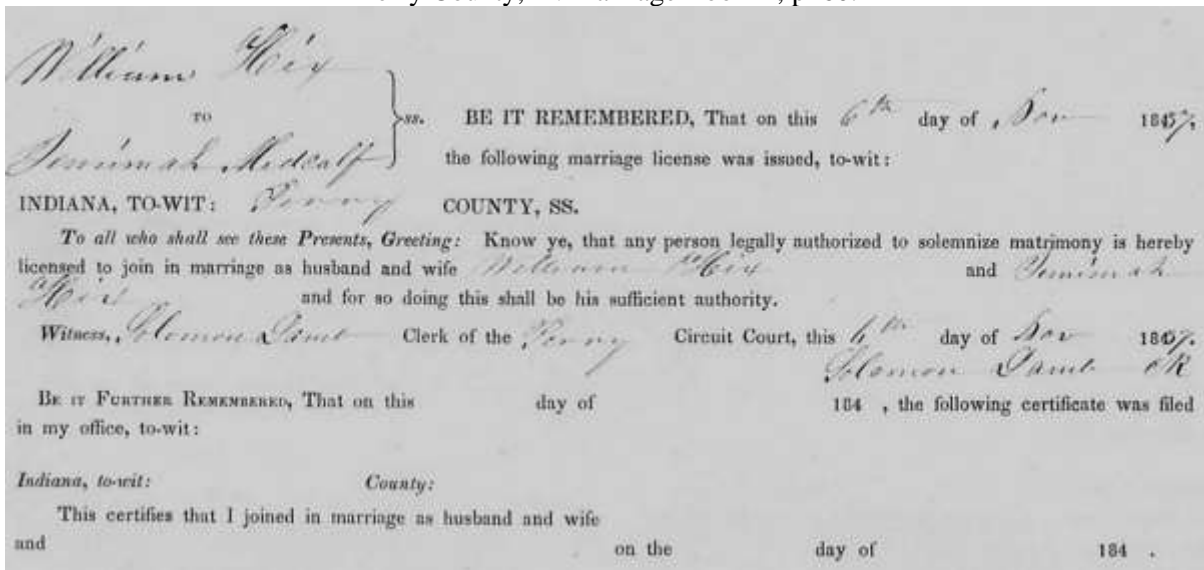 William Hix
TO
Jemimah Midcalf
ss. BE IT REMEMBERED, That on this 6th day of Nov 1847,
the following marriage license was issued, to-wit:
INDIANA, TO-WIT: Perry COUNTY, SS.
To all who shall see these Presents, Greeting: Know ye, that any person legally authorized to solemnize matrimony is hereby
licensed to join in marriage as husband and wife William Hix and Jemimah
Hix and for so doing this shall be his sufficient authority.
Witness, Solomon Lamb Clerk of the Perry Circuit Court, this 6th day of Nov 1847.
Solomon Lamb
BE IT FURTHER REMEMBERED, That on this day of 184 , the following certificate was filed
in my office, to-wit:
Indiana, to-wit: County:
This certifies that I joined in marriage as husband and wife
and on the day of 184 .